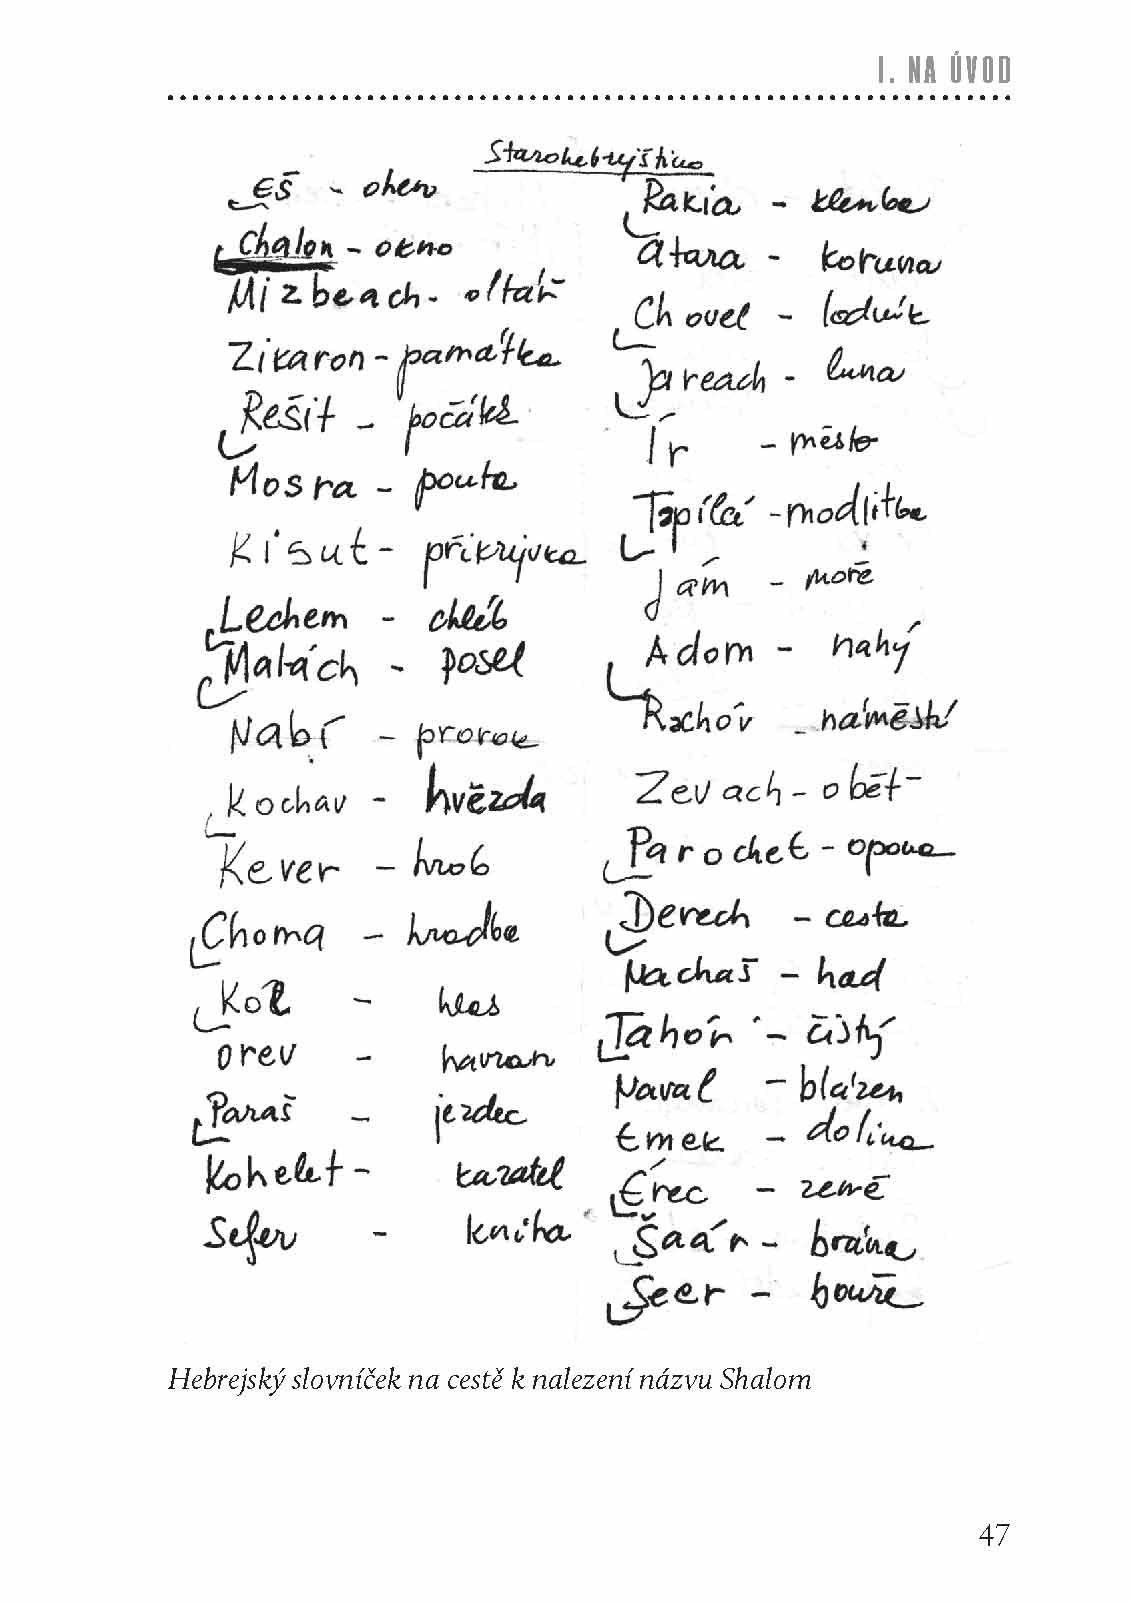 I. NA ÚVOD
Starohebrejština
Eš - oheň
Chalon - okno
Mizbeach - oltář
Zikaron - památka
Rešit - počátek
Mosra - pouta
Kisut - přikrývka
Lechem - chléb
Malách - posel
Nabí - prorok
Kochav - hvězda
Kever - hrob
Choma - hradba
Kol - hlas
Orev - havran
Paraš - jezdec
Kohelet - kazatel
Sefer - kniha
Rakia - klenba
Atara - koruna
Chovel - lodník
Jareach - luna
Ír - město
Tapílá - modlitba
Jám - moře
Adom - nahý
Rachóv - náměstí
Zevach - oběť
Parochet - opona
Derech - cesta
Nachaš - had
Tahór - čistý
Naval - blázen
Emek - dolina
Érec - země
Šaár - brána
Seer - bouře
Hebrejský slovníček na cestě k nalezení názvu Shalom
47